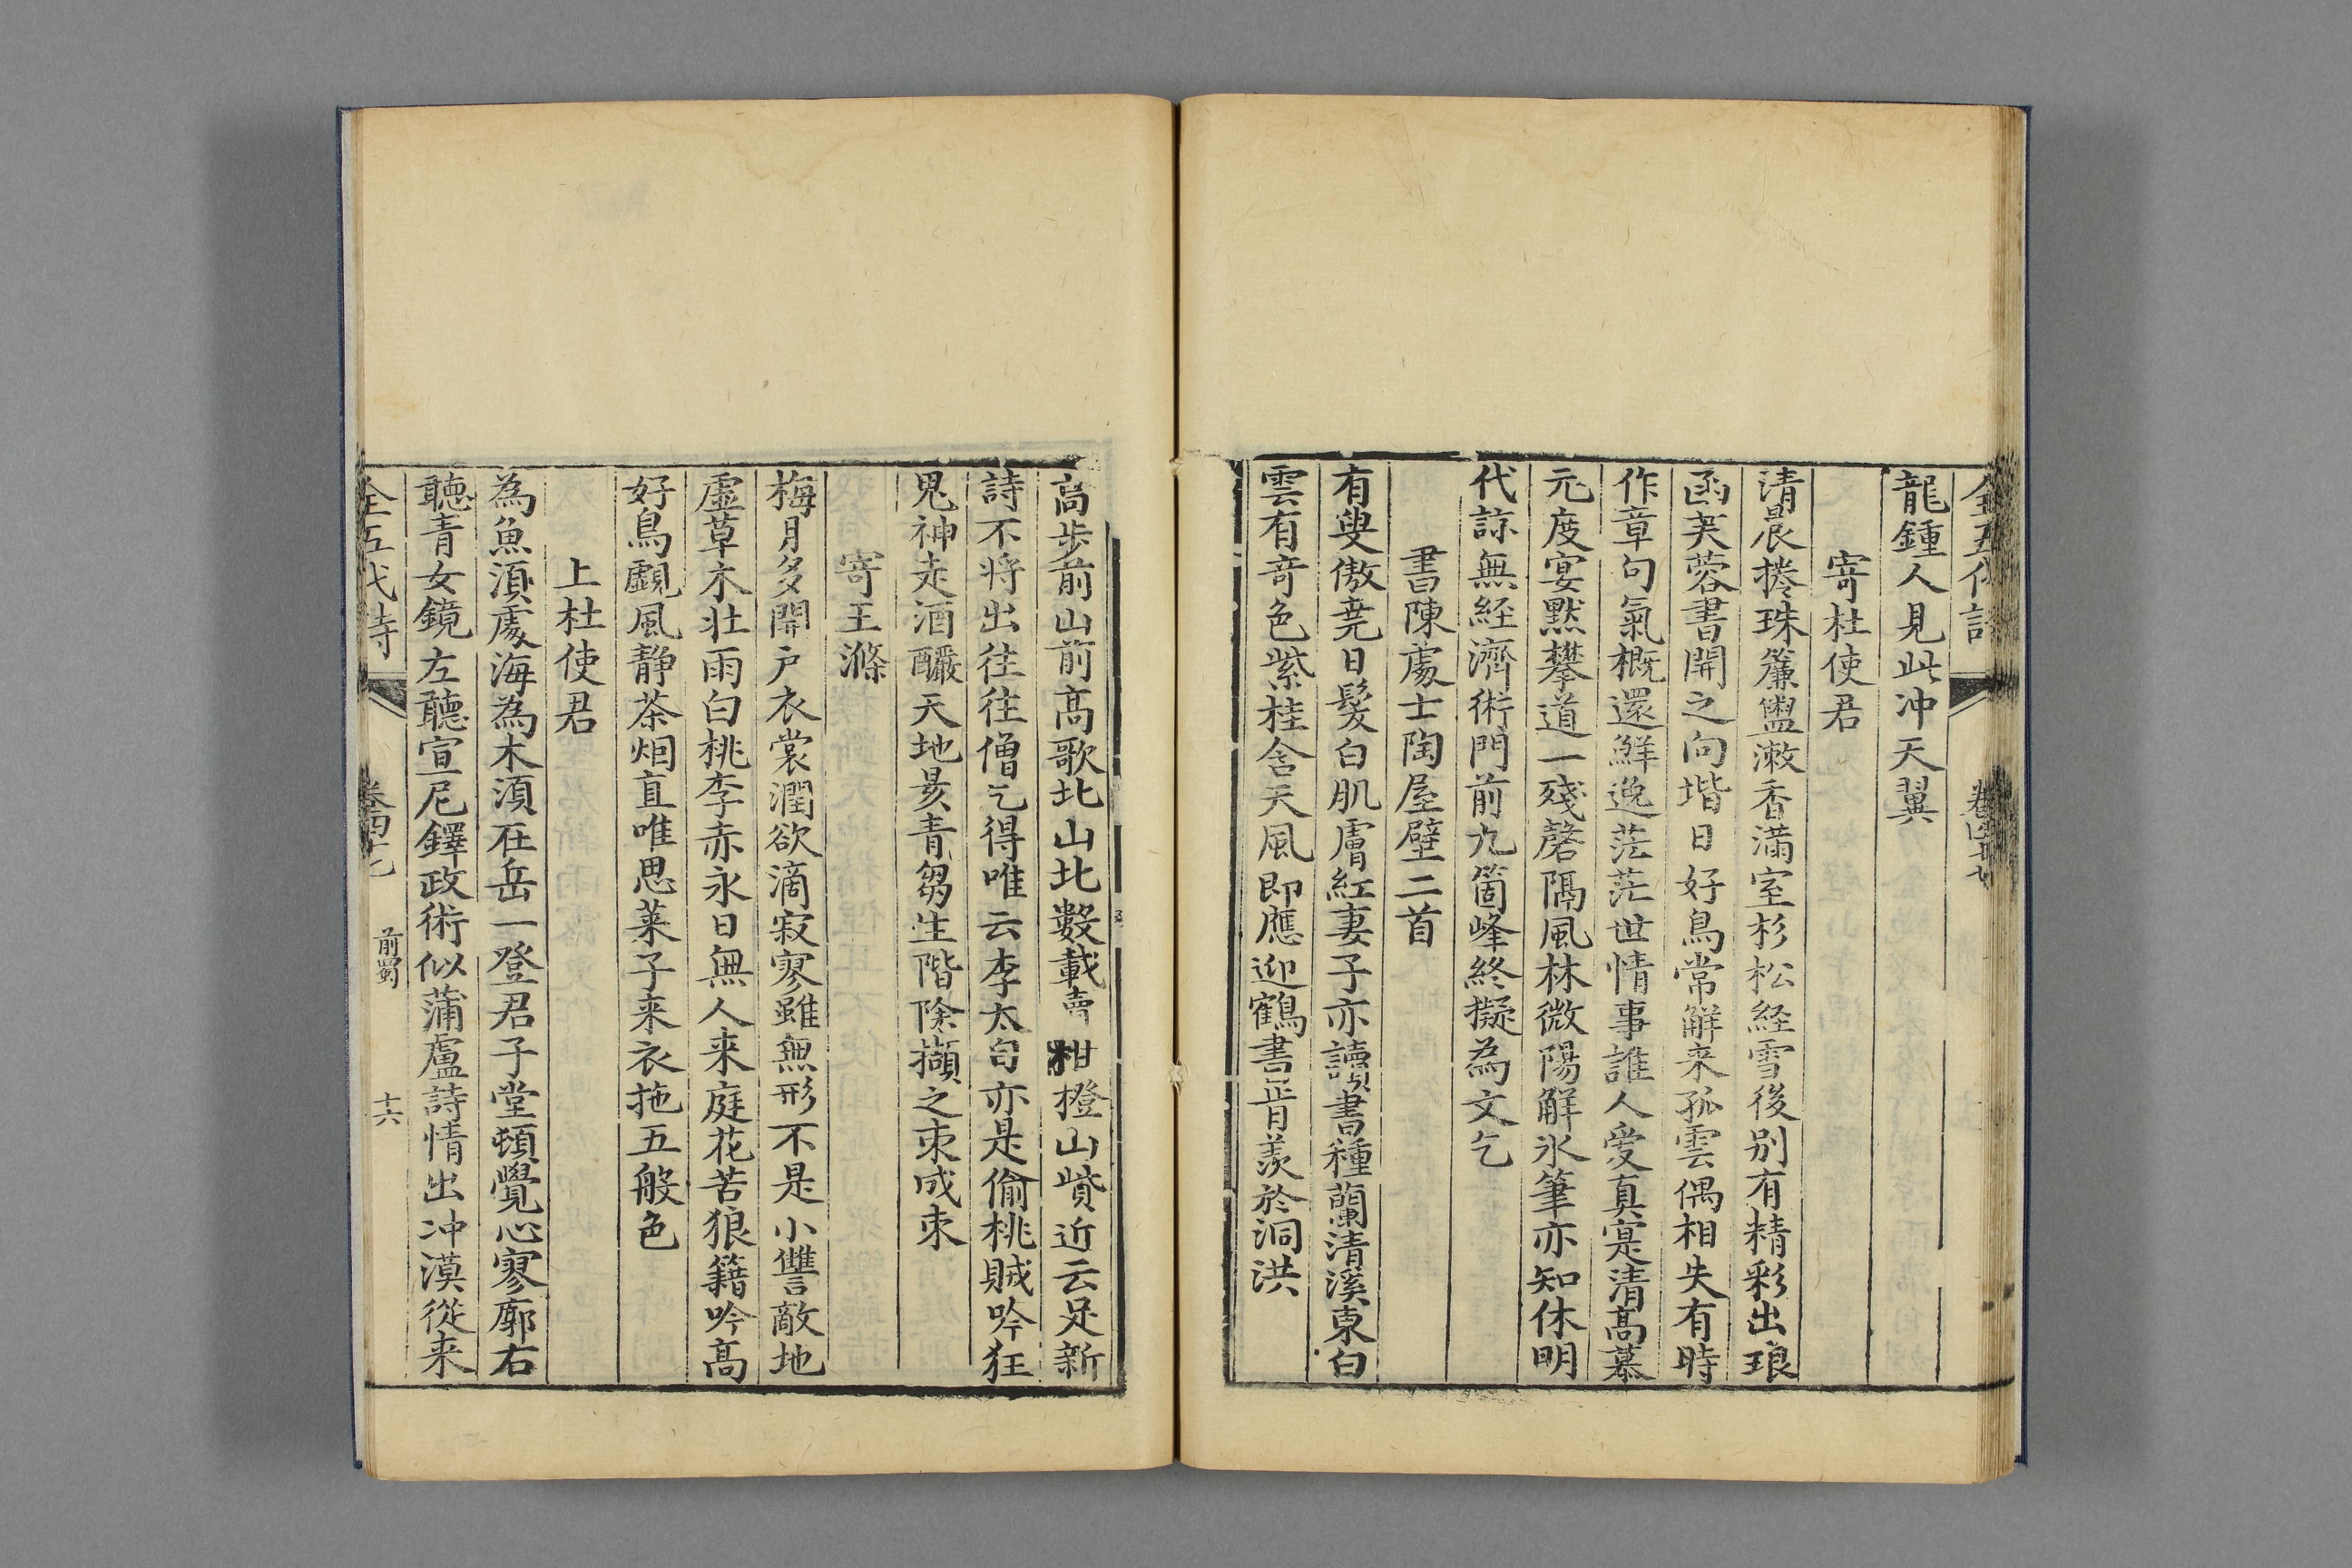 全五代詩
龍鍾人見此冲天翼
寄杜使君
清晨捲珠簾盥漱香滿室杉松経雪後别有精彩出琅
函芙蓉書開之向堦日好鳥常解来孤雲偶相失有時
作章句氣概還鮮逸茫茫世情事誰人愛真寔清髙慕
元度宴默攀道一殘磬隔風林微陽解氷筆亦知休明
代諒無経濟術門前九箇峰終擬為文乞
書陳䖏士陶屋壁二首
有叟傲堯日髪白肌膚紅妻子亦讀書種蘭清溪東白
雲有竒色紫桂含天風即應迎鶴書肯羨於洞洪
高步前山前髙歌北山北數載賣柑橙山貲近云足新
詩不将出往往僧乞得唯云李太白亦是偷桃賊吟狂
鬼神走酒釅天地黒青芻生階除擷之束成束
寄王滌
梅月多開户衣裳潤欲滴寂寥雖無形不是小讐敵地
虛草木壮雨白桃李赤永日無人来庭花苦狼籍吟髙
好鳥覰風静茶烟直唯思莱子来衣拖五般色
上杜使君
為魚湏處海為木湏在岳一登君子堂頓覺心寥廓右
聽青女鏡左聽宣尼鐸政術似蒲盧詩情出冲漠從来
全五代詩 卷四十七 前蜀 十六